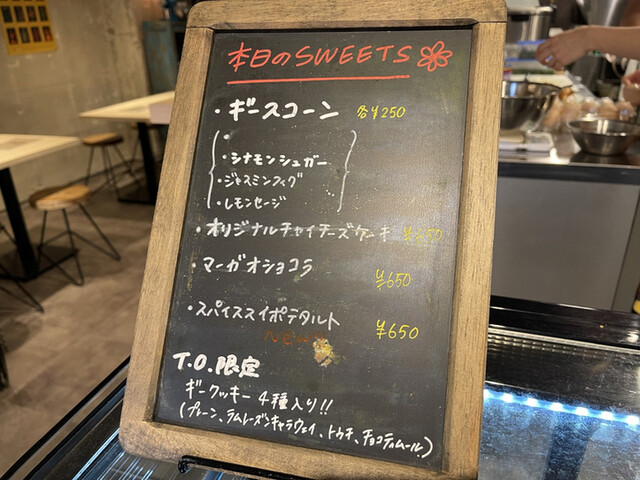 本日のSWEETS
・ギースコーン 各¥250
・
・シナモンシュガー
・ジャスミンフィグ
・レモンセージ
・オリジナルチャイチーズケーキ
・マーガオショコラ ¥650
・スパイススイポテタルト ¥650
NEW
T.O.限定
ギークッキー 4種入り!!
(プレーン、ラムレーズンキャラウェイ、トゥオ、チョコティムール)